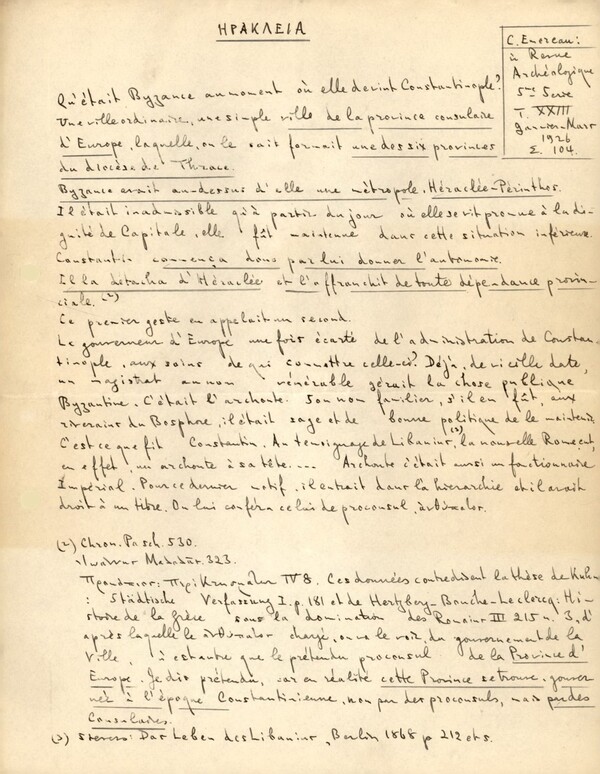 ΗΡΑΚΛΕΙΑ
C. Enereau:
à Revue
Archéologique
5me Serie
T. XXIII
Janvier-Mars
1926
Σ. 104.
Qu'était Byzance au moment où elle devint Constantinople?
Une ville ordinaire, une simple ville de la province consulaire
d'Europe, laquelle, on le sait formait une des six provinces
du diocèse de Thrace.
Byzance avait au-dessus d'elle une métropole. Héraclée-Périnthos.
Il était inadmissible qu'à partir du jour où elle se vit promue à la di-
gnité de Capitale, elle fût maintenue dans cette situation inférieure.
Constantin commença donc par lui donner l'autonomie.
Il la détacha d'Héraclée et l'affranchit de toute dépendance provin-
ciale. (2)
Ce premier geste en appelait un second.
Le gouverneur d'Europe une fois écarté de l'administration de Constan-
tinople, aux soins de qui commettre celle-ci? Déjà, de vieille date,
un magistrat au nom vénérable gérait la chose publique
Byzantine. C'était l'archonte. Son nom familier, s'il en fût, aux
riverains du Bosphore, il était sage et de bonne politique de le maintenir.
C'est ce que fit Constantin. Au témoignage de Libanius, (3) la nouvelle Rome eut,
en effet, un archonte à sa tête.... Archonte c'était aussi un fonctionnaire
Impérial. Pour ce dernier motif, il entrait dans la hierarchie et il avait
droit à un titre. On lui conféra celui de proconsul, ἀνθύπατος.
(2) Chron. Pasch. 530.
323.
IV 8. Ces données contredisent la thèse de Kuhn
: Städtische Verfassung I. p. 181 et de Hertzberg-Bouche-Leclercq: Hi-
stoire de la Grèce sous la domination des Romains III 215 n. 3, d'
après laquelle le ἀνθύπατος chargé, on va le voir, du gouvernement de la
Ville, n'est autre que le prétendu proconsul de la Province d'
Europe. Je dis prétendu, car en réalité cette Province se trouve gouver
née à l'époque Constantinienne, non par des proconsuls, mais par des
Consulaires.
(3) Sievers: Das Leben des Libanius, Berlin 1868 p 212 et s.